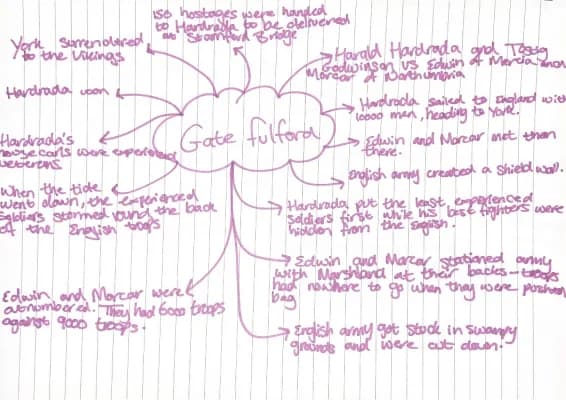 150 hostages were handed
to Hardrada to be delivered
at Stamford Bridge
York surrendered
to the Vikings
Hardrada won
Hardrada's
housecarls were experienced
veterans
When the tide
went down, the experienced
soldiers stormed round the back
of the English troops
Edwin and Morcar were
outnumbered. They had 6000 troops
against 9000 troops.
Gate fulford
Harald Hardrada and Tostig
Godwinson VS Edwin of Mercia and
Morcar of Northumbria
Hardrada sailed to England with
10000 men, heading to York.
Edwin and Morcar met them
there.
English army created a shield wall.
Hardrada put the least experienced
soldiers first while his best fighters were
hidden from the English.
Edwin and Morcar stationed army
with Marshland at their backs - troops
had nowhere to go when they were pushed
bag
English army got stuck in swampy
grounds and were cut down.